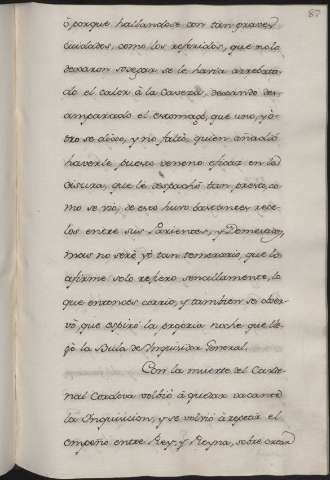 87
ô porque hallandose con tan graves
cuidados, como los referidos, que no lo
dexaron sosegar se le havia arrebata
do el calor â la Caveza, dexando des
amparado el estomago, que uno, y ô
tro se dixo, y no faltô, quien añadiô
haverle puesto veneno eficaz en la
que le despachô tan presto, co
mo se viô, de esto huvo bastantes rece
los entre sus Parientes, y Domesticos,
mas no serê yô tan temerario, que lo
afirme solo refiero sencillamente, lo
que entonces corriô, y tambien se obser
vô, que espirô la propria noche que lle
gô la Bula de Inquisidor General.
Con la muerte del Carde
nal Cordova volbiô â quedar vacante
la Inquisicion, y se volviô â repetir el
empeño entre Rey, y Reyna, sobre crear